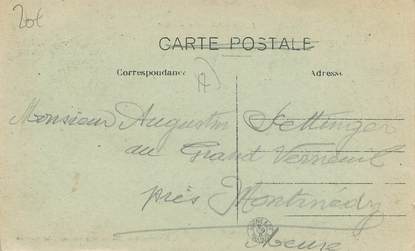 20€
CARTE POSTALE
Correspondance
Adresse
A
Monsieur Augustin Settinger
au Grand Verneuil
près Montmédy
Meuse